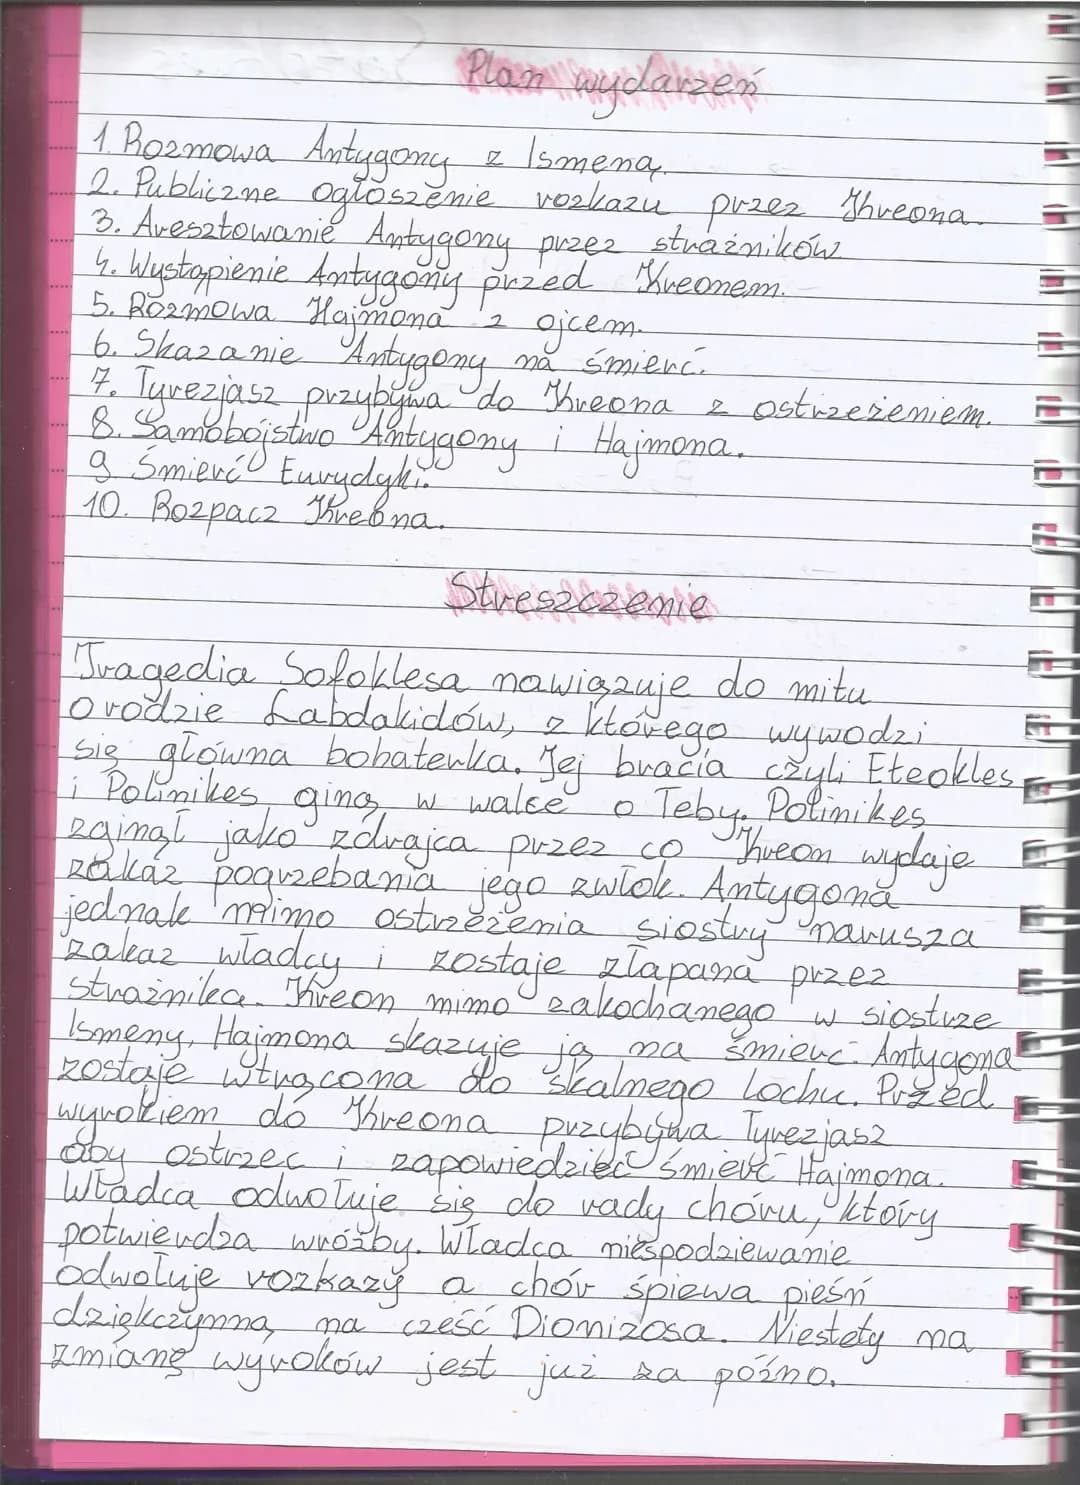 Plan wydarzeń
1. Rozmowa Antygony z Ismeną.
2. Publiczne ogłoszenie rozkazu przez Kreona.
3. Aresztowanie Antygony przez strażników
4. Wystąpienie Antygony przed Kreonem.
5. Rozmowa Hajmona z ojcem.
6. Skazanie Antygony na śmierć.
7. Tyrezjasz przybywa do Kreona z ostrzeżeniem.
8. Samobójstwo Antygony i Hajmona.
9 Śmierć Eurydyki.
10. Rozpacz Kreona.
Streszczenie
Tragedia Sofoklesa nawiązuje do mitu
o rodzie Labdakidów, z którego wywodzi
się główna bohaterka. Jej bracia czyli Eteokles
i Polinikes giną w walce o Teby. Polinikes
zginął jako zdrajca przez co Kreon wydaje
zakaz pogrzebania jego zwłok. Antygona
jednak mimo ostrzeżenia siostry narusza
zakaz władcy i zostaje złapana przez
strażnika. Kreon mimo zakochanego w siostrze
Ismeny, Hajmona skazuje ją na śmierć. Antygona
zostaje wtrącona do skalnego lochu. Przed
wyrokiem do Kreona przybywa Tyrezjasz
aby ostrzec i zapowiedzieć śmierć Hajmona.
Władca odwołuje się do rady chóru, który
potwierdza wróżby. Władca niespodziewanie
odwołuje rozkazy a chór śpiewa pieśń
dziękczynną na cześć Dionizosa. Niestety na
zmianę wyroków jest już za późno.